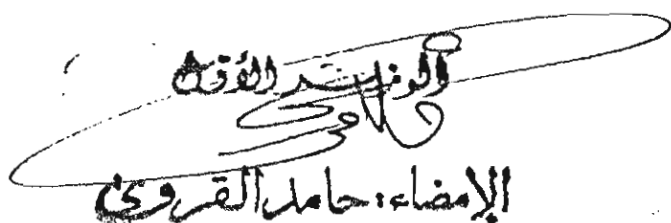 الوزير الأول
الإمضاء: حامد القروي